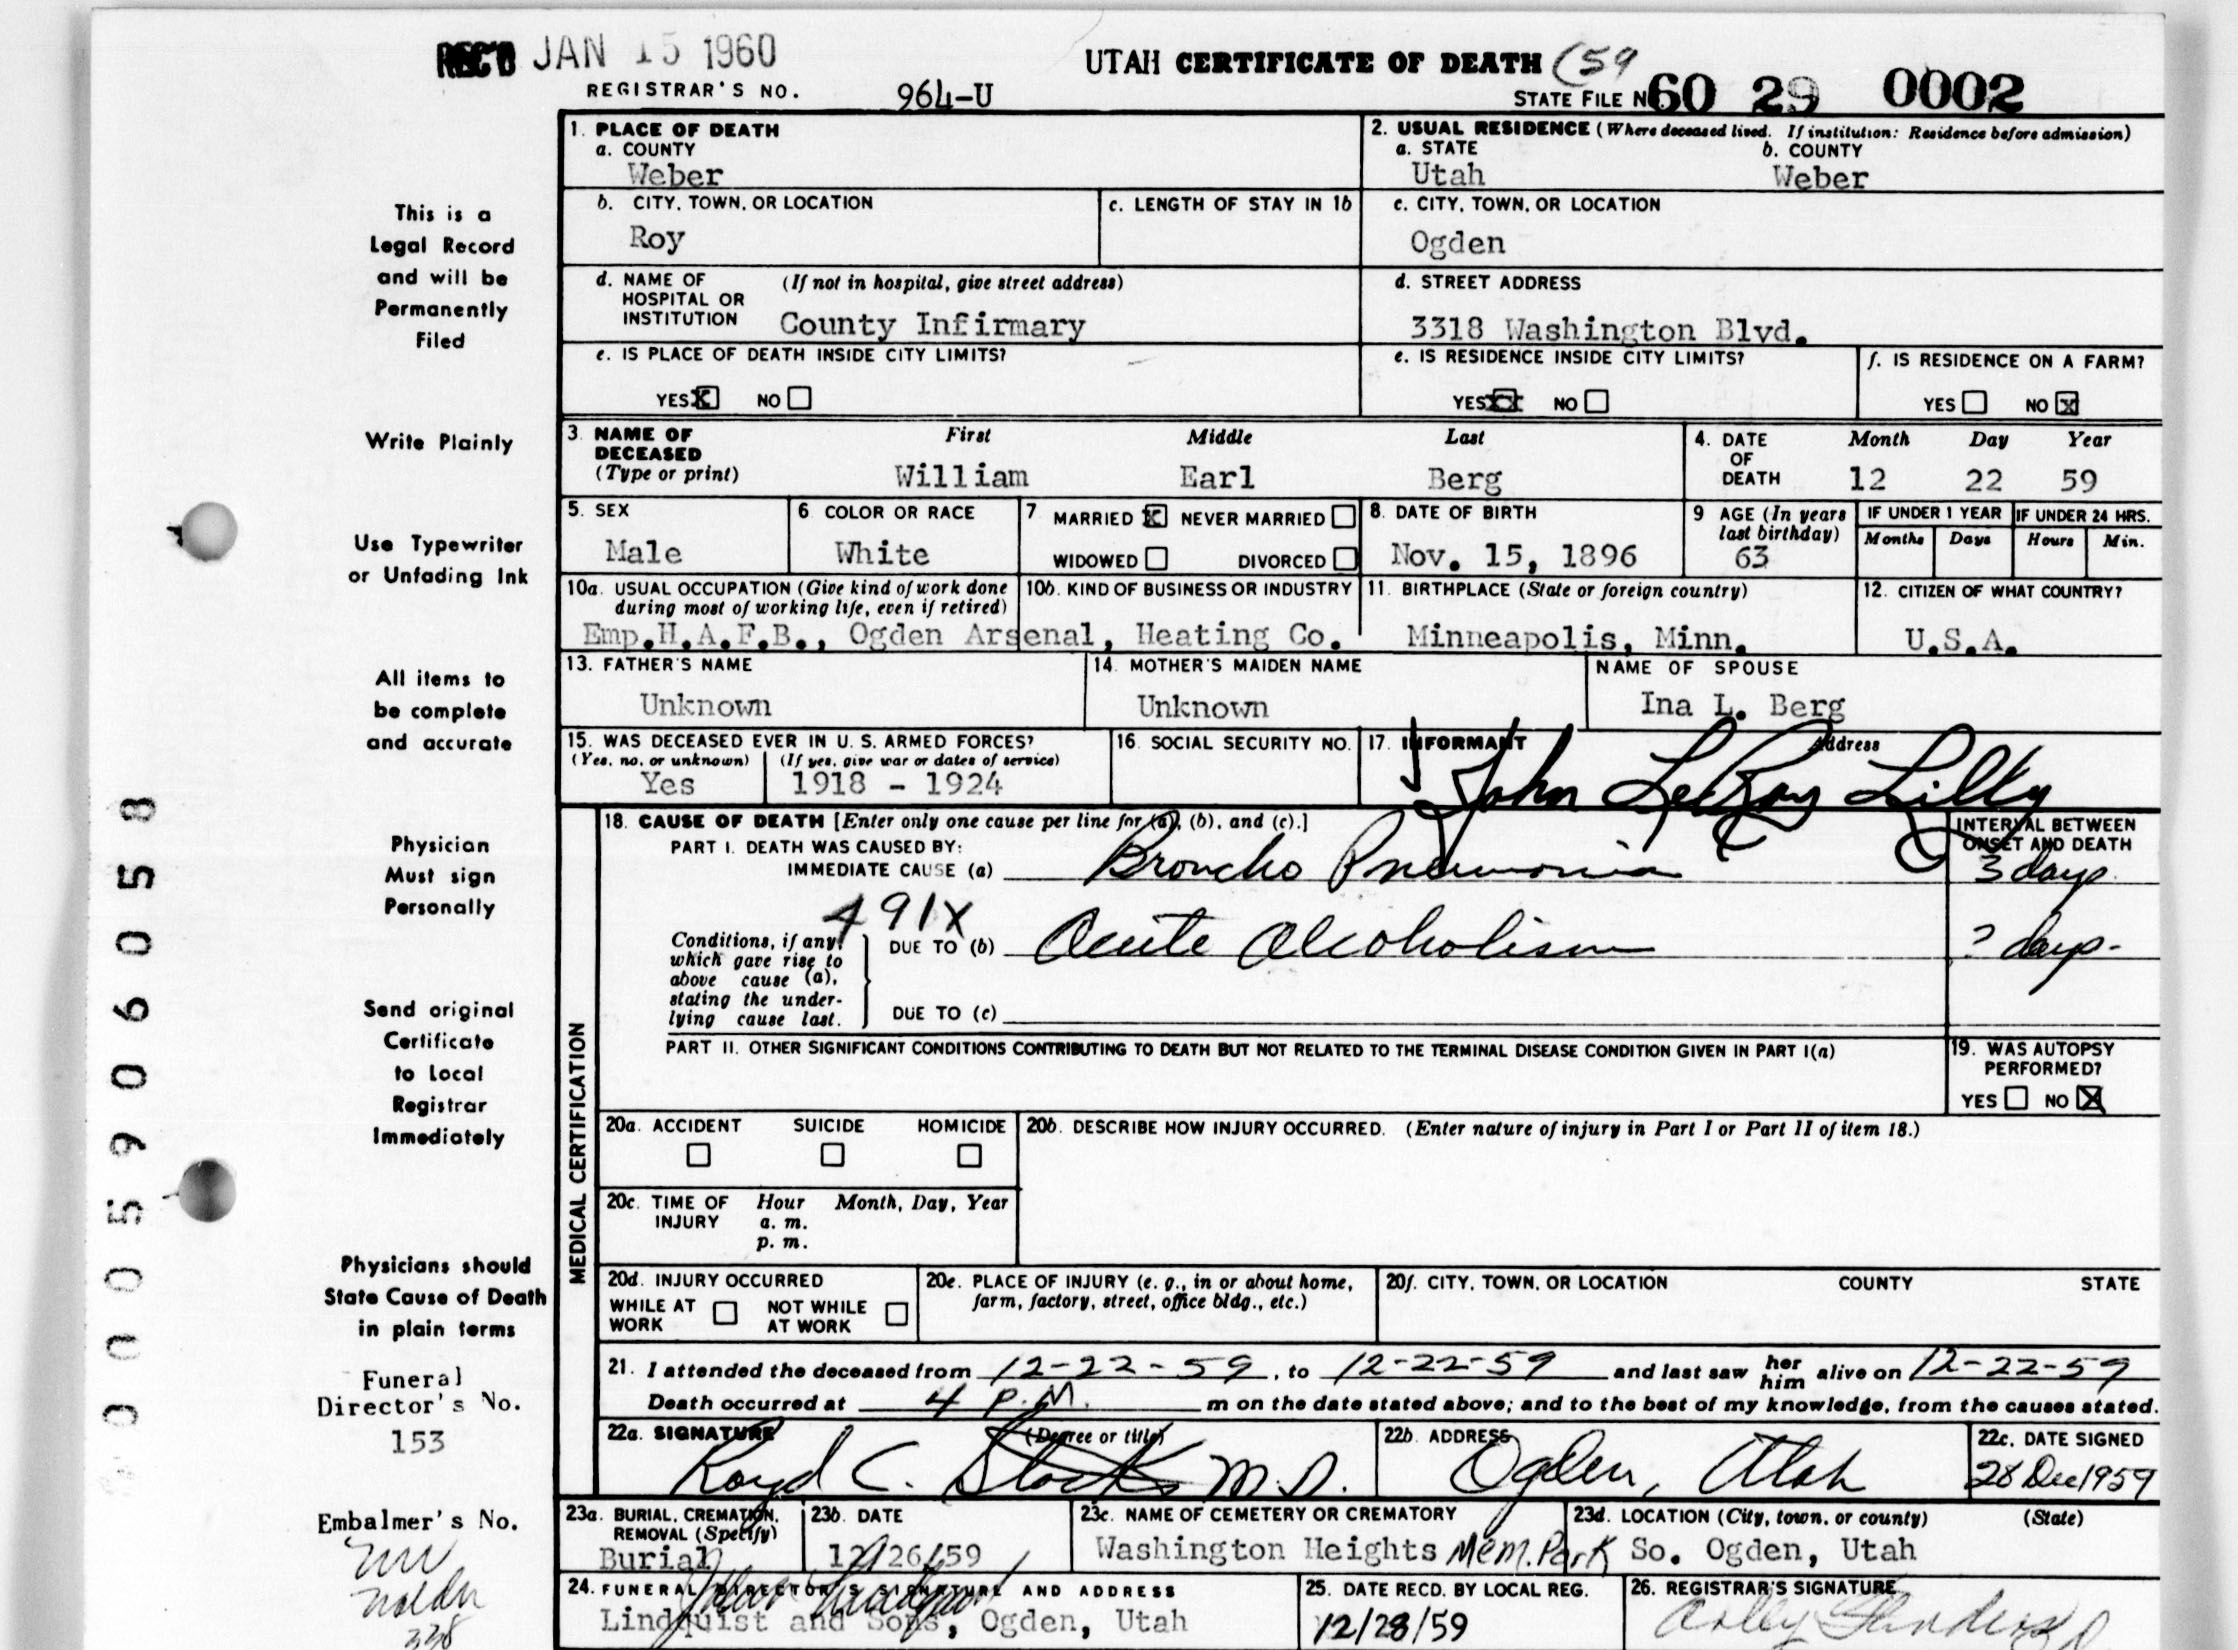 REC'D JAN 15 1960
UTAH CERTIFICATE OF DEATH (59
REGISTRAR'S NO. 964-U
STATE FILE NO. 60 29 0002
1. PLACE OF DEATH
a. COUNTY
Weber
2. USUAL RESIDENCE (Where deceased lived. If institution: Residence before admission)
a. STATE b. COUNTY
Utah Weber
b. CITY, TOWN, OR LOCATION c. LENGTH OF STAY IN 1b
Roy
c. CITY, TOWN, OR LOCATION
Ogden
d. NAME OF HOSPITAL OR INSTITUTION (If not in hospital, give street address)
County Infirmary
d. STREET ADDRESS
3318 Washington Blvd.
e. IS PLACE OF DEATH INSIDE CITY LIMITS?
YES X NO
e. IS RESIDENCE INSIDE CITY LIMITS?
YES XX NO
f. IS RESIDENCE ON A FARM?
YES NO X
3. NAME OF DECEASED (Type or print) First Middle Last
William Earl Berg
4. DATE OF DEATH Month Day Year
12 22 59
5. SEX
Male
6. COLOR OR RACE
White
7 MARRIED X NEVER MARRIED
WIDOWED DIVORCED
8. DATE OF BIRTH
Nov. 15, 1896
9 AGE (In years last birthday)
63
IF UNDER 1 YEAR IF UNDER 24 HRS.
Months Days Hours Min.
10a. USUAL OCCUPATION (Give kind of work done during most of working life, even if retired)
10b. KIND OF BUSINESS OR INDUSTRY
Emp.H.A.F.B., Ogden Arsenal, Heating Co.
11. BIRTHPLACE (State or foreign country)
Minneapolis, Minn.
12. CITIZEN OF WHAT COUNTRY?
U.S.A.
13. FATHER'S NAME
Unknown
14. MOTHER'S MAIDEN NAME
Unknown
NAME OF SPOUSE
Ina L. Berg
15. WAS DECEASED EVER IN U. S. ARMED FORCES?
(Yes, no, or unknown) (If yes, give war or dates of service)
Yes 1918 - 1924
16. SOCIAL SECURITY NO.
17. INFORMANT Address
John LeRoy Lilly
MEDICAL CERTIFICATION
18. CAUSE OF DEATH [Enter only one cause per line for (a), (b), and (c).]
INTERVAL BETWEEN ONSET AND DEATH
PART I. DEATH WAS CAUSED BY:
IMMEDIATE CAUSE (a) Broncho Pneumonia 3 days
491X
Conditions, if any, which gave rise to above cause (a), stating the underlying cause last.
DUE TO (b) Acute Alcoholism ? days
DUE TO (c)
PART II. OTHER SIGNIFICANT CONDITIONS CONTRIBUTING TO DEATH BUT NOT RELATED TO THE TERMINAL DISEASE CONDITION GIVEN IN PART I(a)
19. WAS AUTOPSY PERFORMED?
YES NO X
20a. ACCIDENT SUICIDE HOMICIDE
20b. DESCRIBE HOW INJURY OCCURRED. (Enter nature of injury in Part I or Part II of item 18.)
20c. TIME OF INJURY Hour Month, Day, Year
a. m.
p. m.
20d. INJURY OCCURRED
WHILE AT WORK NOT WHILE AT WORK
20e. PLACE OF INJURY (e. g., in or about home, farm, factory, street, office bldg., etc.)
20f. CITY, TOWN, OR LOCATION COUNTY STATE
21. I attended the deceased from 12-22-59, to 12-22-59 and last saw her him alive on 12-22-59
Death occurred at 4 P.M. m on the date stated above; and to the best of my knowledge, from the causes stated.
22a. SIGNATURE (Degree or title)
Royd C. Stocks M.D.
22b. ADDRESS
Ogden, Utah
22c. DATE SIGNED
28 Dec 1959
23a. BURIAL, CREMATION, REMOVAL (Specify)
Burial
23b. DATE
12/26/59
23c. NAME OF CEMETERY OR CREMATORY
Washington Heights Mem. Park
23d. LOCATION (City, town, or county) (State)
So. Ogden, Utah
24. FUNERAL DIRECTOR'S SIGNATURE AND ADDRESS
Lindquist and Sons, Ogden, Utah
25. DATE RECD. BY LOCAL REG.
12/28/59
26. REGISTRAR'S SIGNATURE
This is a
Legal Record
and will be
Permanently
Filed
Write Plainly
Use Typewriter
or Unfading Ink
All items to
be complete
and accurate
Physician
Must sign
Personally
Send original
Certificate
to Local
Registrar
Immediately
Physicians should
State Cause of Death
in plain terms
Funeral
Director's No.
153
Embalmer's No.
338
0005906058